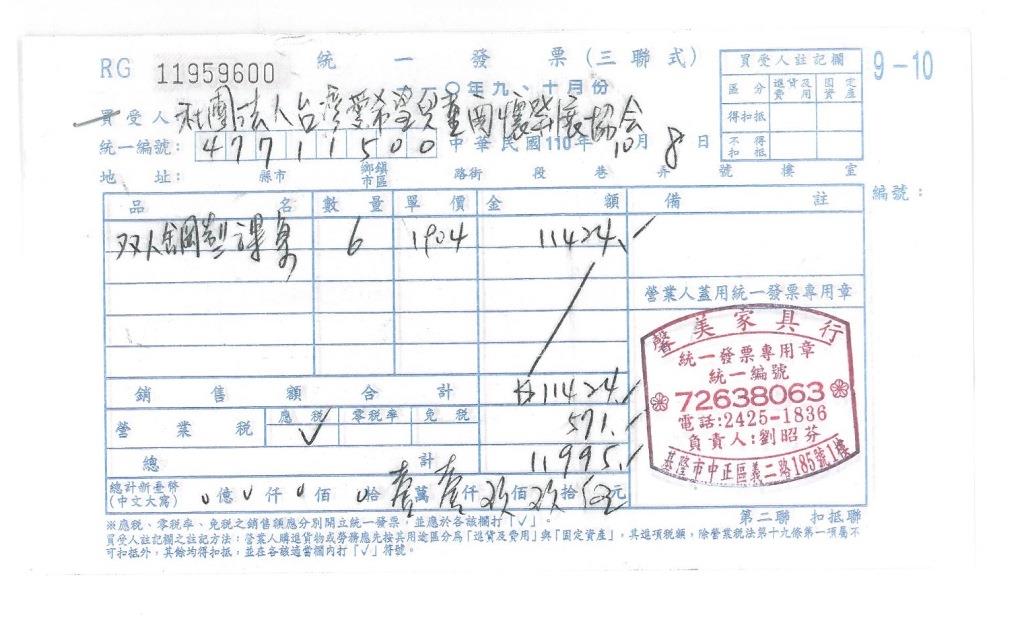 RG 11959600
統一發票(三聯式)
一一〇年九、十月份
9-10
買受人註記欄
區分 進貨及費用 固定資產
得扣抵
不得扣抵
買受人 社團法人台灣愛希望兒童關懷發展協會
統一編號: 47711500 中華民國110年10月8日
地址: 縣市 鄉鎮市區 路街 段 巷 弄 號 樓 室
編號:
品名 數量 單價 金額 備註
双人鋼製課桌 6 1904 11424.
營業人蓋用統一發票專用章
馨美家具行
統一發票專用章
統一編號
72638063
電話:2425-1836
負責人:劉昭芬
基隆市中正區義二路185號1樓
銷售額合計 11424.
營業稅 應稅 ✓ 零稅率 免稅 571.
總計 11995.
總計新臺幣(中文大寫) 0億0仟0佰0拾壹萬壹仟玖佰玖拾伍元
第二聯 扣抵聯
※應稅、零稅率、免稅之銷售額應分別開立統一發票,並應於各該欄打「✓」。
買受人註記欄之註記方法:營業人購進貨物或勞務應先按其用途區分為「進貨及費用」與「固定資產」,其進項稅額,除營業稅法第十九條第一項屬不
可扣抵外,其餘均得扣抵,並在各該適當欄內打「✓」符號。